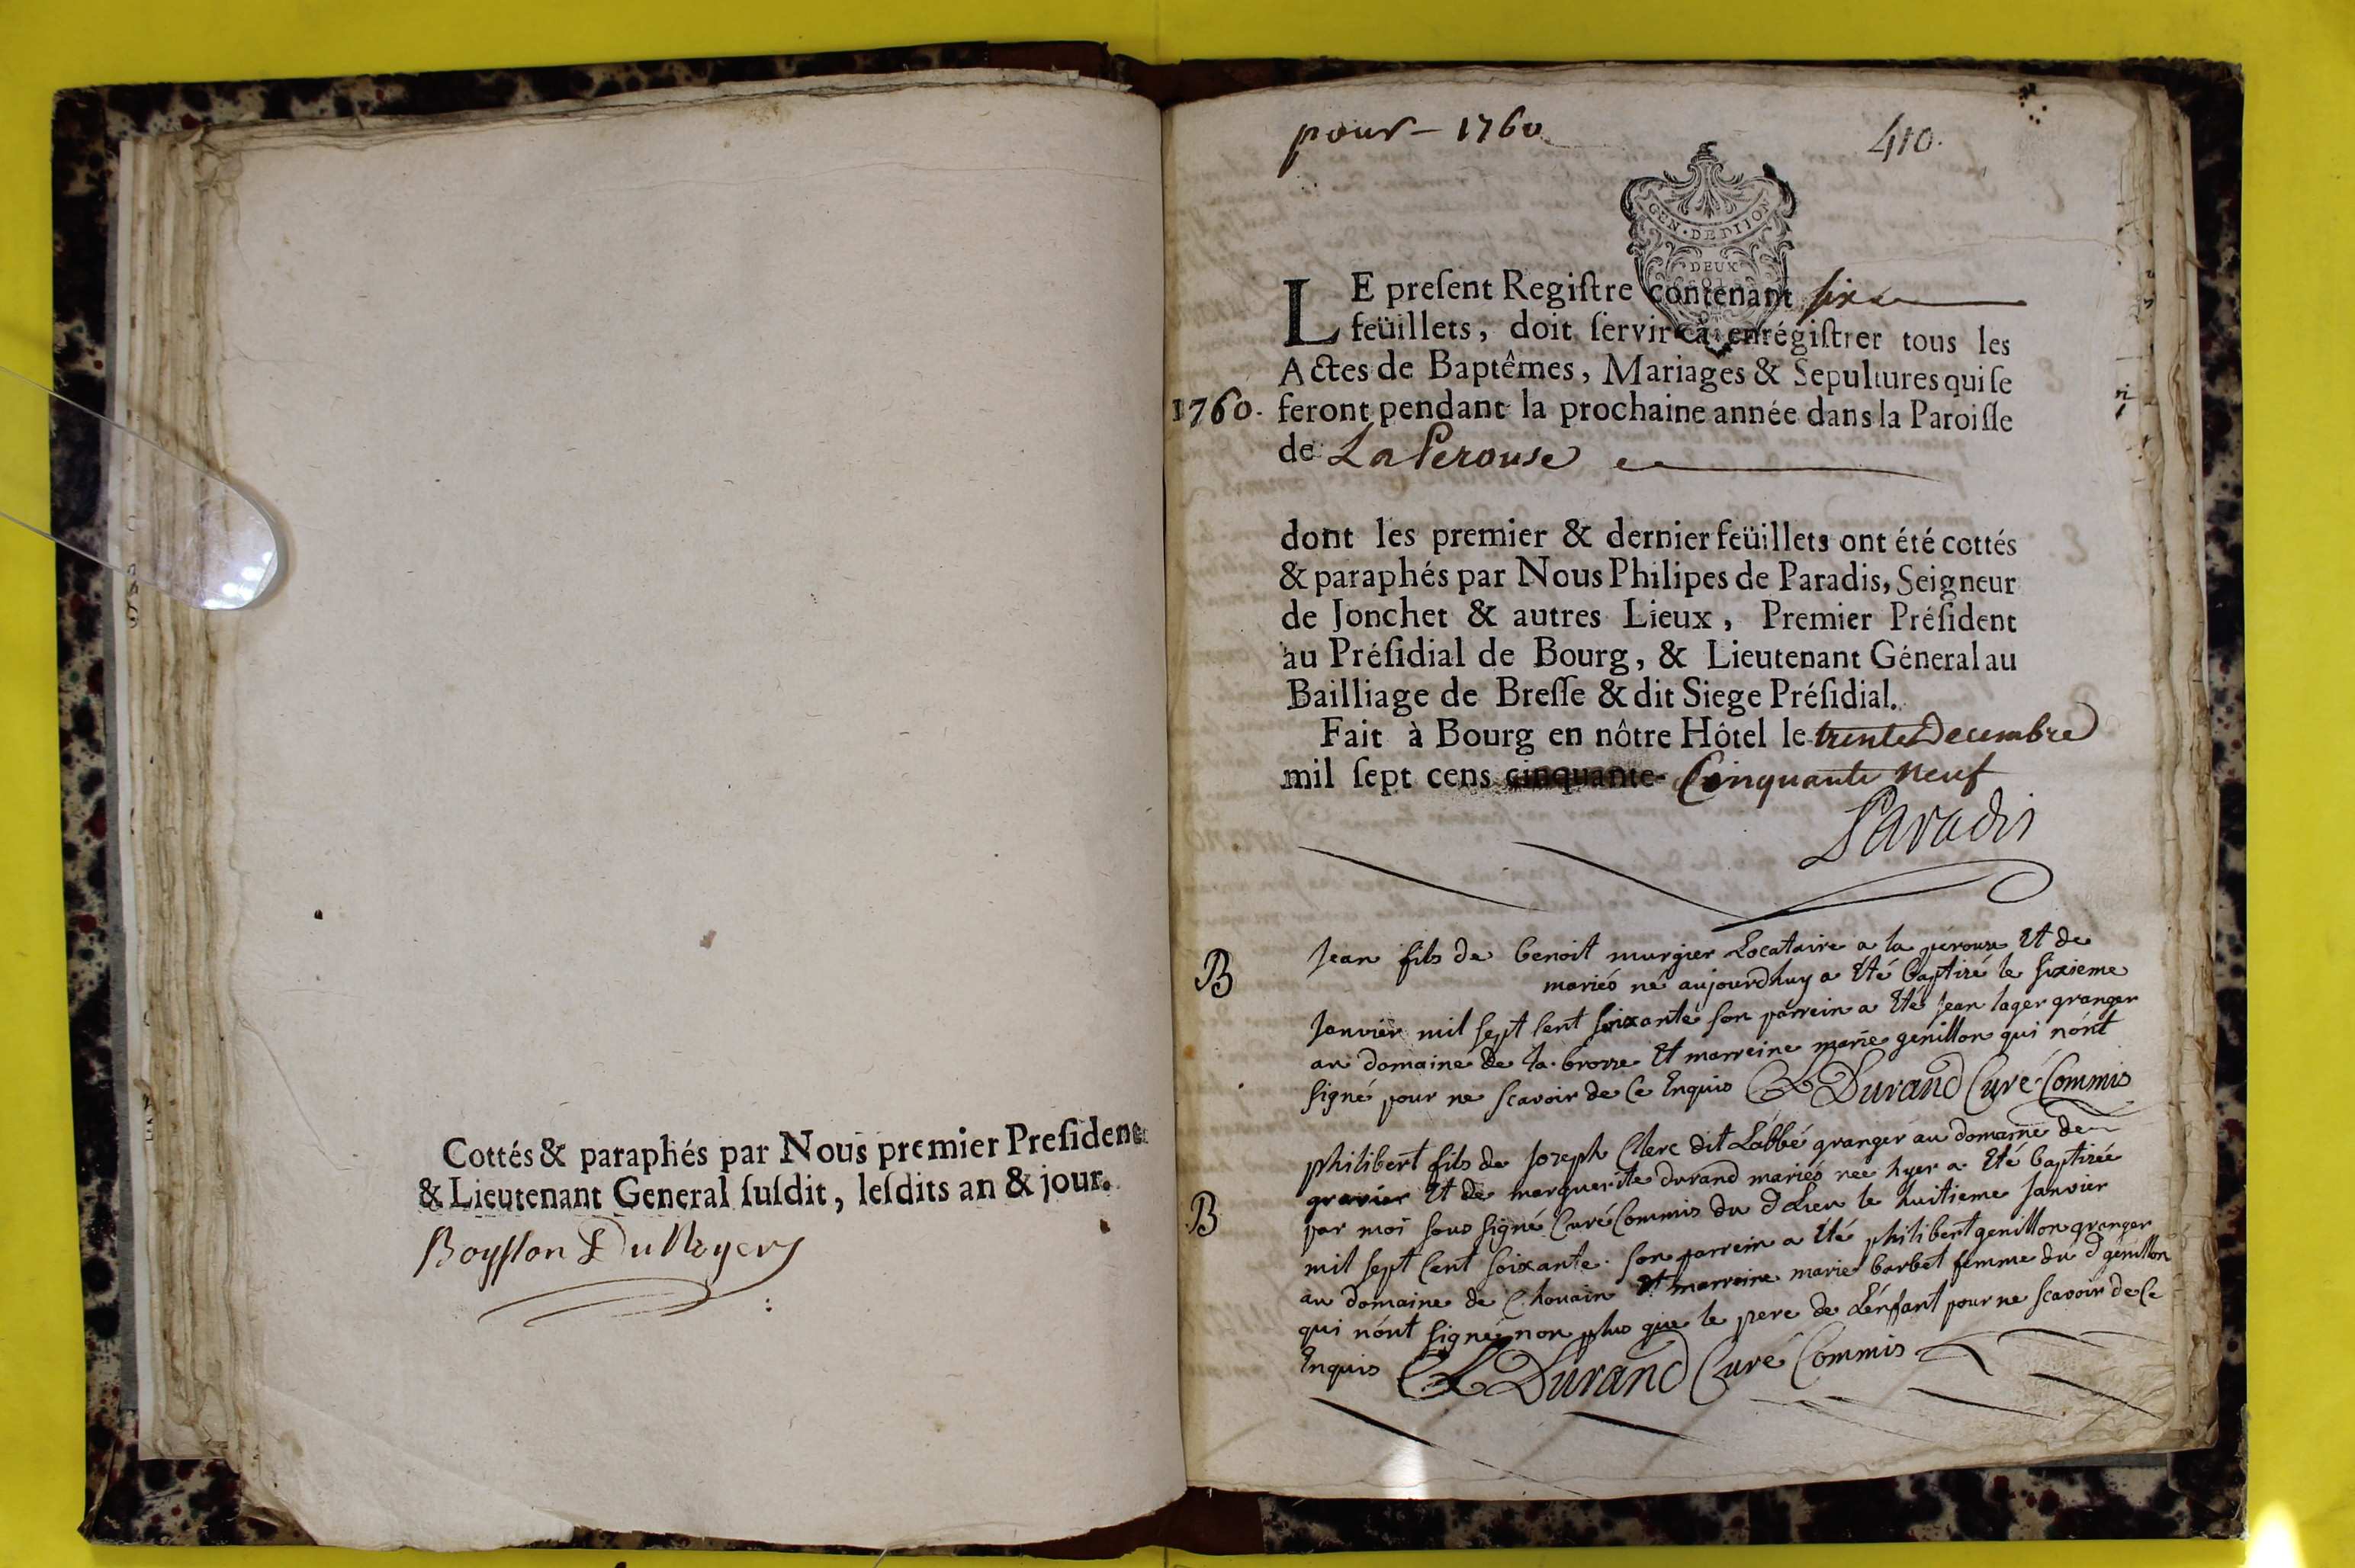 Cottés & paraphés par Nous premier President
& Lieutenant General ſuſdit, leſdits an & jour.
pour - 1760
410.
GEN. DE DIJON
DEUX
LE preſent Regiſtre contenant six
feüillets, doit ſervir à enrégiſtrer tous les
Actes de Baptêmes, Mariages & Sepultures qui ſe
1760. feront pendant la prochaine année dans la Paroiſſe
de La Perouse
dont les premier & dernier feüillets ont été cottés
& paraphés par Nous Philipes de Paradis, Seigneur
de Jonchet & autres Lieux, Premier Préſident
au Préſidial de Bourg, & Lieutenant Géneral au
Bailliage de Breſſe & dit Siege Préſidial.
Fait à Bourg en nôtre Hôtel le trente Decembre
mil ſept cens cinquante- Cinquante neuf
Paradis
B
Jean fils de benoit murgier Locataire a la perouse Et de
mariés né aujourdhuy a Eté baptizé le sixieme
Janvier mil sept Cent soixante son parrein a Eté Jean lager granger
au domaine de la brosse Et marreine marie genillon qui n'ont
signé pour ne scavoir de Ce Enquis Durand Curé Commis
B
philibert fils de Joseph Clerc dit Labbé granger au domaine de
gravier Et de marguerite durand mariés neé hyer a Eté baptizeé
par moi sous signé Curé Commis du d Lieu le huitieme Janvier
mil sept Cent soixante. son parrein a Eté philibert genillon granger
au domaine de Chouain Et marreine marie barbet femme du d genillon
qui n'ont signé non plus que le pere de L'enfant pour ne scavoir de Ce
Enquis Durand Curé Commis